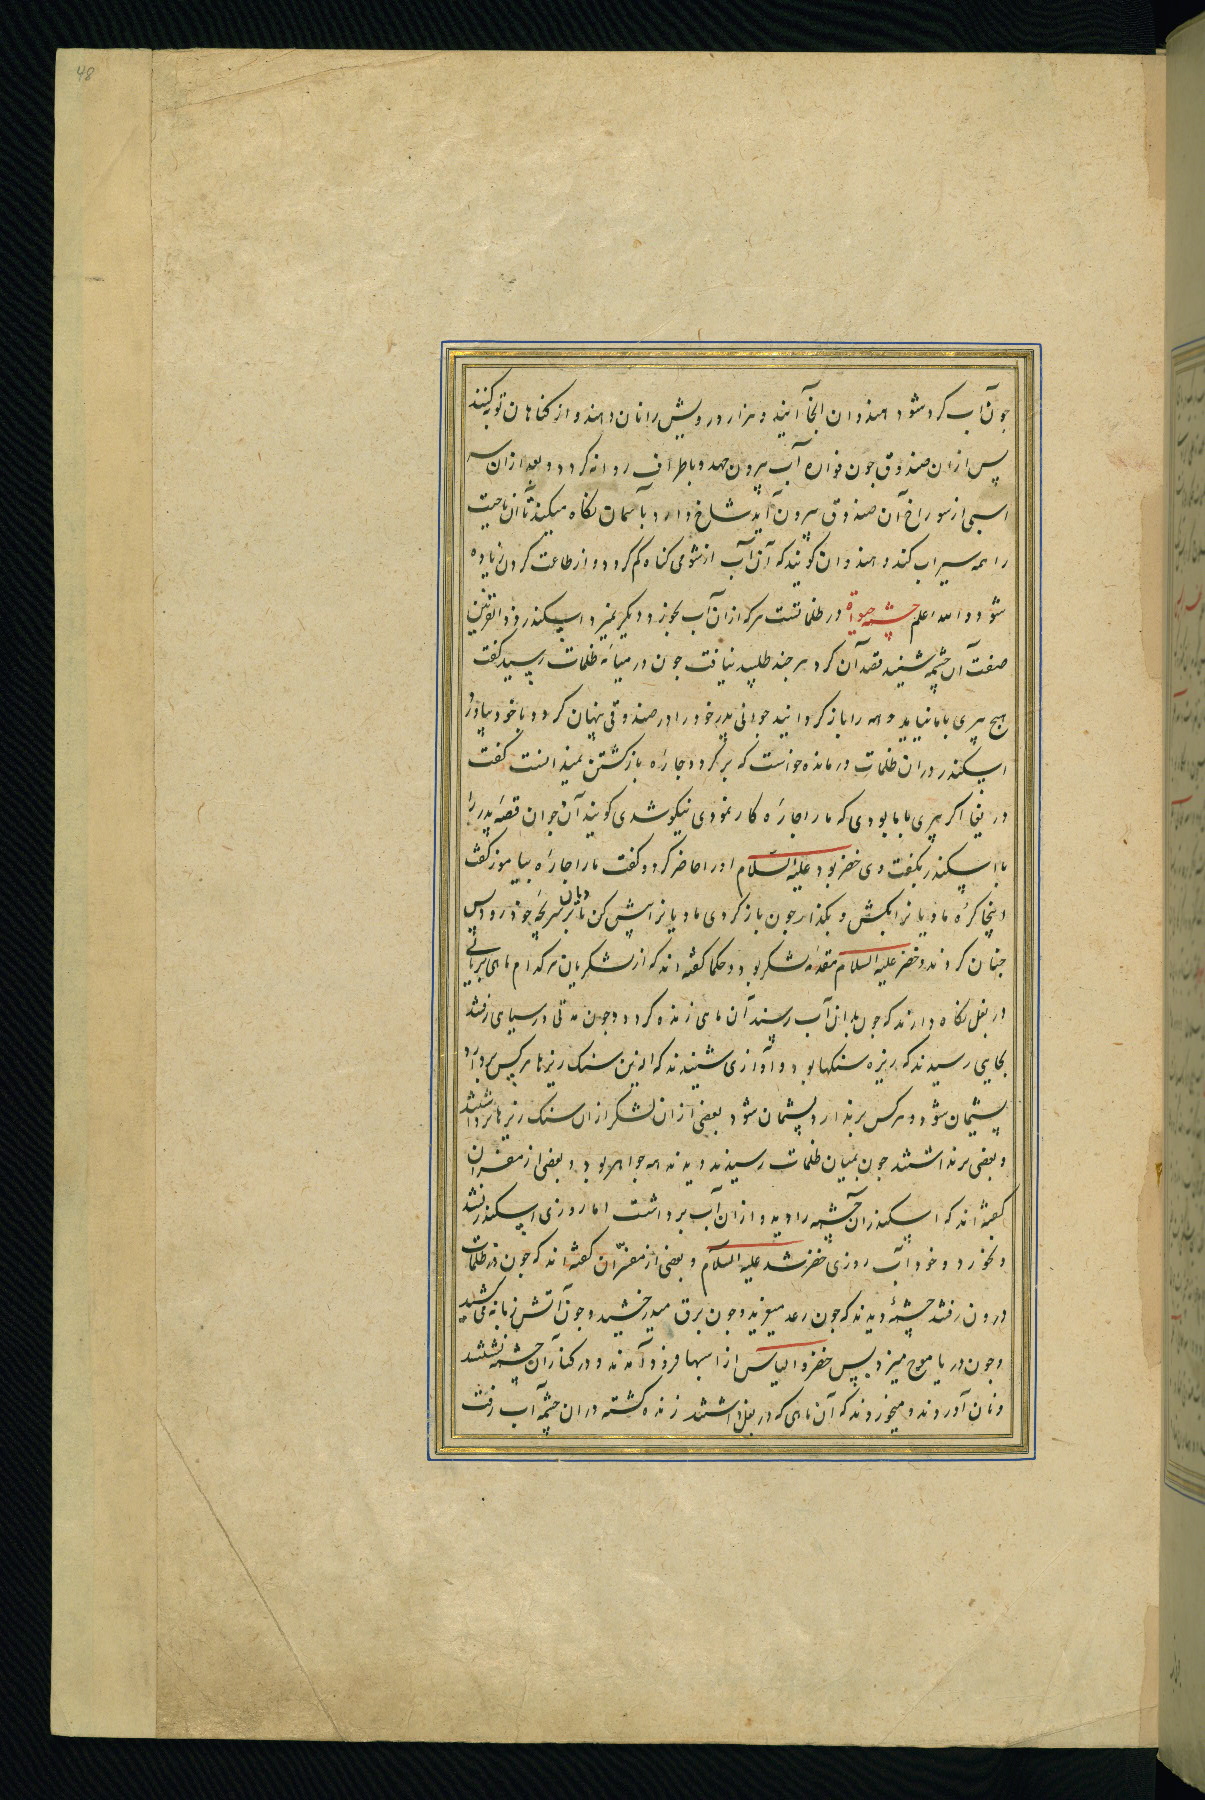 48
جون آب کرد شود هندوان انجا آیند و هزار درویش را نان دهند و از کناهان توبه کنند
پس ازان صندوق جون فواره آب بیرون جهد و باطراف روانه کردد و بعد ازان سر
اسبی از سوراخ آن صندوق بیرون آید شاخ دارد بآسمان نکاه میکند تا آن ناحیت
را همه سیراب کند و هندوان کویند که آن آب از شومی کناه کم کردد و از طاعت کردن زیاده
شود و الله اعلم چشمه حیوة در ظلماتست هر که ازان آب بخورد دیکر نمیرد اسکندر ذو القرنین
صفت آن چشمه شنید قصد آن کرد هر جند طلبید نیافت جون در میانه ظلمات رسید کفت
هیج پیری با ما نیاید و همه را باز کردانید جوانی پدر خود را در صندوقی پنهان کرد و با خود بیاورد
اسکندر دران ظلمات درمانده خواست که بر کردد جاره باز کشتن نمیدانست کفت
دریغا اکر پیری با ما بودی که ما را جاره کار نمودی نیکو شدی کویند آن جوان قصه پدر را
با اسکندر بکفت وی خضر بود علیه السلام او را حاضر کرد و کفت ما را جاره بیاموز کفت
اینجا کره مادیانرا بکش و بکذار جون باز کردی مادیانرا پیش کن تا بر سر بجه خود رود پس
جنان کردند و خضر علیه السلام مقدمه لشکر بود و حکما کفته اند که از لشکریان هر کدام ماهی بریانی
در بغل نکاه دارند که جون بدان آب رسند آن ماهی زنده کردد و جون مدتی در سیاهی رفتند
بجایی رسیدند که ریزه سنکها بود و آوازی شنیدند که ازین سنک ریزها هر کس بردارد
پشیمان شود و هر کس بر ندارد پشیمان شود بعضی ازان لشکر ازان سنک ریزها برداشتند
و بعضی برنداشتند جون بمیان ظلمات رسیدند دیدند همه جواهر بود و بعضی از مفسران
کفته اند که اسکندر آن چشمه را دید و ازان آب برداشت اما روزی اسکندر نشد
و نخورد و خود آب روزی خضر شد علیه السلام و بعضی از مفسران کفته اند که جون در ظلمات
درون رفتند چشمهٔ دیدند که جون رعد میغرید و جون برق میدرخشید و جون آتش زبانه می کشید
و جون دریا موج میزد پس خضر و الیاس از اسبها فرود آمدند و در کنار آن چشمه نشستند
و نان آوردند و میخوردند که آن ماهی که در بغل داشتند زنده کشته دران چشمه آب رفت